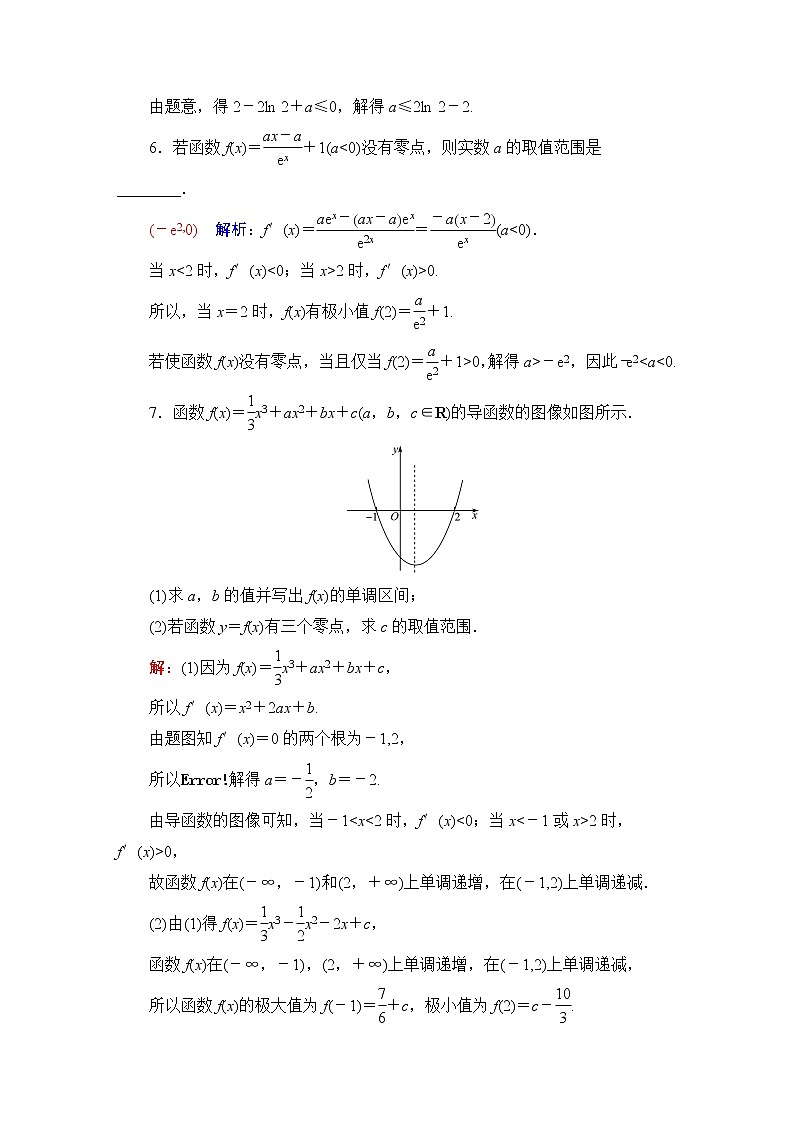 由题意，得 2－2ln 2＋a≤0，解得 a≤2ln 2－2.
6．若函数 f(x)＝\frac{ax－a}{e^x}＋1(a<0)没有零点，则实数 a 的取值范围是
________．
(－e²,0)　解析：f′(x)＝\frac{ae^x－(ax－a)e^x}{e^{2x}}＝\frac{－a(x－2)}{e^x}(a<0)．
当 x<2 时，f′(x)<0；当 x>2 时，f′(x)>0.
所以，当 x＝2 时，f(x)有极小值 f(2)＝\frac{a}{e²}＋1.
若使函数 f(x)没有零点，当且仅当 f(2)＝\frac{a}{e²}＋1>0，解得 a>－e²，因此－e²<a<0.
7．函数 f(x)＝\frac{1}{3}x³＋ax²＋bx＋c(a，b，c∈R)的导函数的图像如图所示．
y
－1 O 2 x
(1)求 a，b 的值并写出 f(x)的单调区间；
(2)若函数 y＝f(x)有三个零点，求 c 的取值范围．
解：(1)因为 f(x)＝\frac{1}{3}x³＋ax²＋bx＋c，
所以 f′(x)＝x²＋2ax＋b.
由题图知 f′(x)＝0 的两个根为－1,2，
所以Error!解得 a＝－\frac{1}{2}，b＝－2.
由导函数的图像可知，当－1<x<2 时，f′(x)<0；当 x<－1 或 x>2 时，
f′(x)>0，
故函数 f(x)在(－∞，－1)和(2，＋∞)上单调递增，在(－1,2)上单调递减．
(2)由(1)得 f(x)＝\frac{1}{3}x³－\frac{1}{2}x²－2x＋c，
函数 f(x)在(－∞，－1)，(2，＋∞)上单调递增，在(－1,2)上单调递减，
所以函数 f(x)的极大值为 f(－1)＝\frac{7}{6}＋c，极小值为 f(2)＝c－\frac{10}{3}.